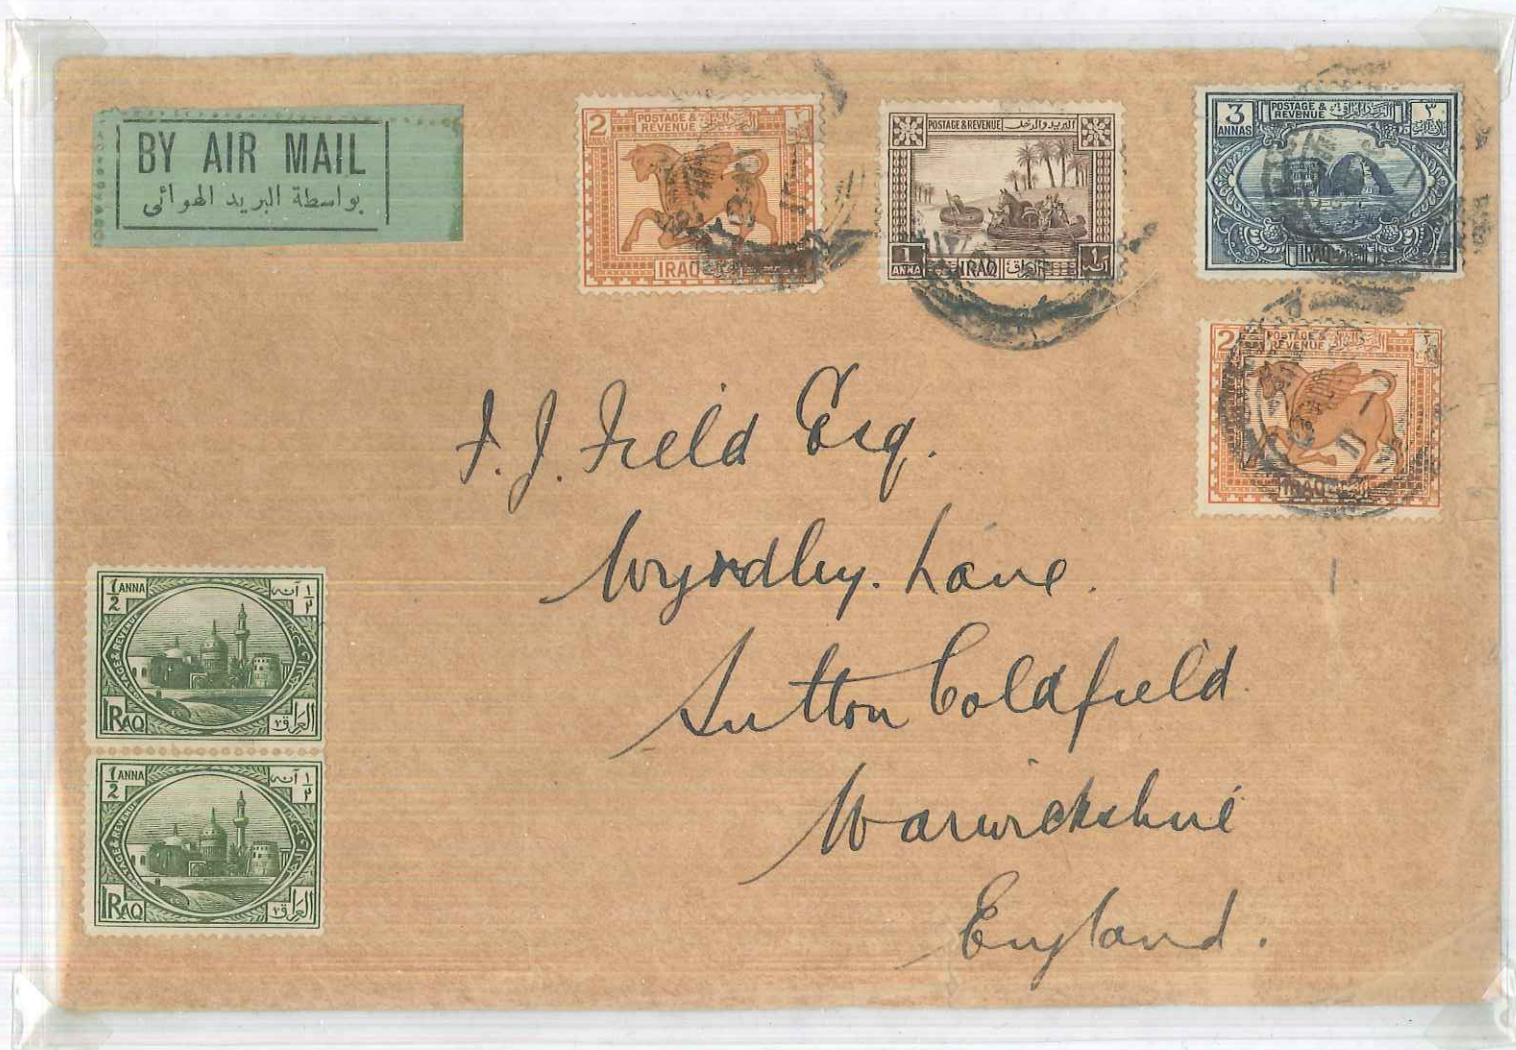 BY AIR MAIL
بواسطة البريد الهوائي
2
POSTAGE &
REVENUE
IRAQ
POSTAGE & REVENUE البريد والدخل
1
ANNA
IRAQ العراق
١
آنه
3
ANNAS
POSTAGE &
REVENUE
٣
IRAQ
2
POSTAGE &
REVENUE
IRAQ
F. J. Field Esq.
Wyndley. Lane.
Sutton Coldfield.
Warwickshire
England.
1/2 ANNA
١/٢ آنه
POSTAGE & REVENUE
IRAQ
العراق
1/2 ANNA
١/٢ آنه
POSTAGE & REVENUE
IRAQ
العراق